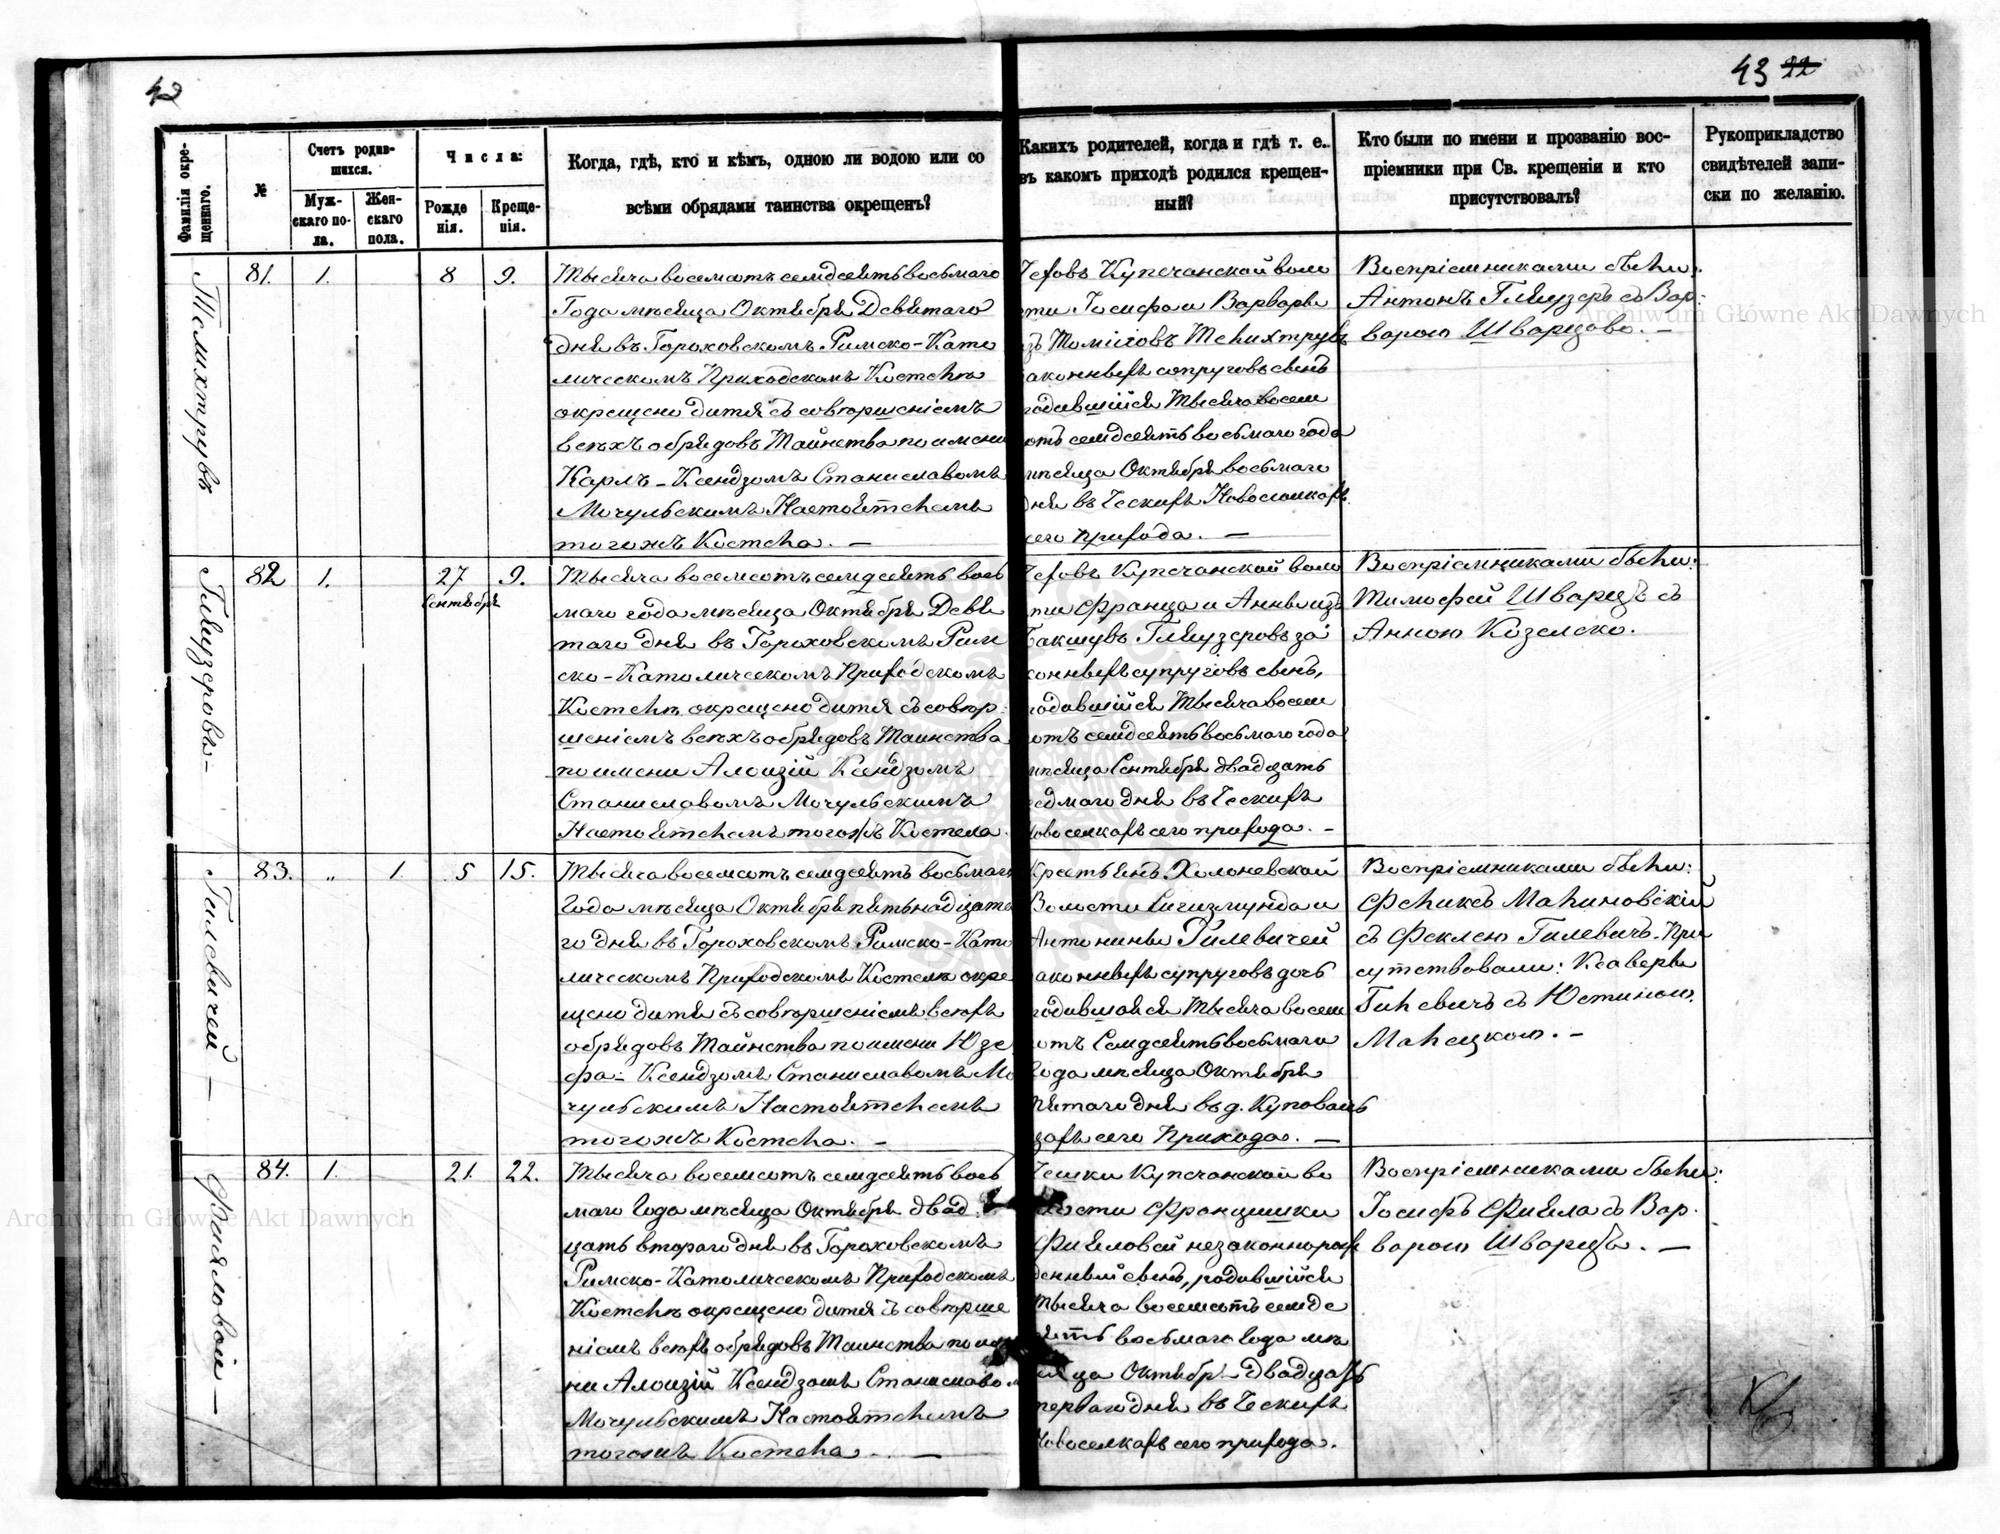 42
43 22
Фамилія окре-
щеннаго.
№
Счетъ родив-
шихся.
Муж-
скаго по-
ла.
Жен-
скаго
пола.
Числа:
Рожде
нія.
Креще-
нія.
Когда, гдѣ, кто и кѣмъ, одною ли водою или со
всѣми обрядами таинства окрещенъ?
Какихъ родителей, когда и гдѣ т. е.
въ какомъ приходѣ родился крещен-
ный?
Кто были по имени и прозванію вос-
пріемники при Св. крещеніи и кто
присутствовалъ?
Рукоприкладство
свидѣтелей запи-
ски по желанію.
81. 1. 8 9.
Тысяча восемотъ семдсятъ восьмаго
Года мѣсяца Октября Девятаго
дня въ Гороховскомъ Римско-Като
лическомъ Приходскомъ Костелѣ
окрещено дитя съ совершеніемъ
всѣхъ обрядовъ Таинства по имени
Карлъ - Ксендзомъ Станиславомъ
Мочульскимъ Настоятелемъ
тогожъ Костела. —
Чеховъ Купечанской воло
сти Іосифа и Варвары
законныхъ супруговъ сынъ
родившійся Тысяча восем
отъ семдсятъ восьмаго года
мѣсяца Октября восьмаго
дня въ Ческихъ Новоселкахъ
сего прихода. —
Воспріемниками были:
Антонъ Гляузеръ съ Вар-
варою Шварцово. —
82 1. 27 9.
Сентября
Гляузеровъ -
Тысяча восемсотъ семдсятъ вось
маго года мѣсяца Октября Девя
таго дня въ Гороховскомъ Рим
ско-Католическомъ Приходскомъ
Костелѣ окрещено дитя съ совер-
шеніемъ всѣхъ обрядовъ Таинства
по имени Алоизій Ксендзомъ
Станиславомъ Мочульскимъ
Настоятелемъ тогожъ Костела.
Чеховъ Купечанской воло
сти Франца и Анны изъ
Гляузеровъ за
конныхъ супруговъ сынъ,
родившійся Тысяча восем
отъ семдсятъ восьмаго года
мѣсяца Сентября двадцать
седмаго дня въ Ческихъ
Новоселкахъ сего прихода. -
Воспріемниками были:
Тимофей Шварцъ съ
Анною Козелско.
83. „ 1 5 15.
Гилевичей -
Тысяча восемсотъ семдсятъ восьмаго
Года мѣсяца Октября пятьнадцата
го дня въ Гороховскомъ Римско-Като
лическомъ Приходскомъ Костелѣ окре
щено дитя съ совершеніемъ всѣхъ
обрядовъ Таинства по имени Юзе
фа - Ксендзомъ Станиславомъ Мо
чульскимъ Настоятелемъ
тогожъ Костела. —
Крестьянъ Холоневской
Волости Сигизмунда и
Антонины Гилевичей
законныхъ супруговъ дочь
родившаяся Тысяча восем
отъ Семдсятъ восьмаго
Года мѣсяца Октября
пятаго дня въ д. Куповаль
цахъ сего Прихода. —
Воспріемниками были:
Феликсъ Малиновскій
съ Феклею Гилевичъ. При
сутствовали: Ксаверы
Гилевичъ съ Юстиною
Малецкою. -
84. 1. 21. 22.
Фияловой -
Тысяча восемсотъ семдсятъ вось
маго Года мѣсяца Октября двад
цать втораго дня въ Гороховскомъ
Римско-Католическомъ Приходскомъ
Костелѣ окрещено дитя съ соверше
ніемъ всѣхъ обрядовъ Таинства по име
ни Алоизій Ксендзомъ Станиславом
Мочульскимъ Настоятелемъ
тогожъ Костела. —
Чешки Купечанской во
лости Францишки
Фияловой незаконнорож
денный сынъ, родившійся
Тысяча восемсотъ семде
сятъ восьмаго Года мѣ
сяца Октябр- двадцать
перваго дня въ Ческихъ
Новоселкахъ сего прихода.
Воспріемниками были:
Іосифъ Фияла съ Вар-
варою Шварцъ. —
Archiwum Główne Akt Dawnych
Archiwum Główne Akt Dawnych